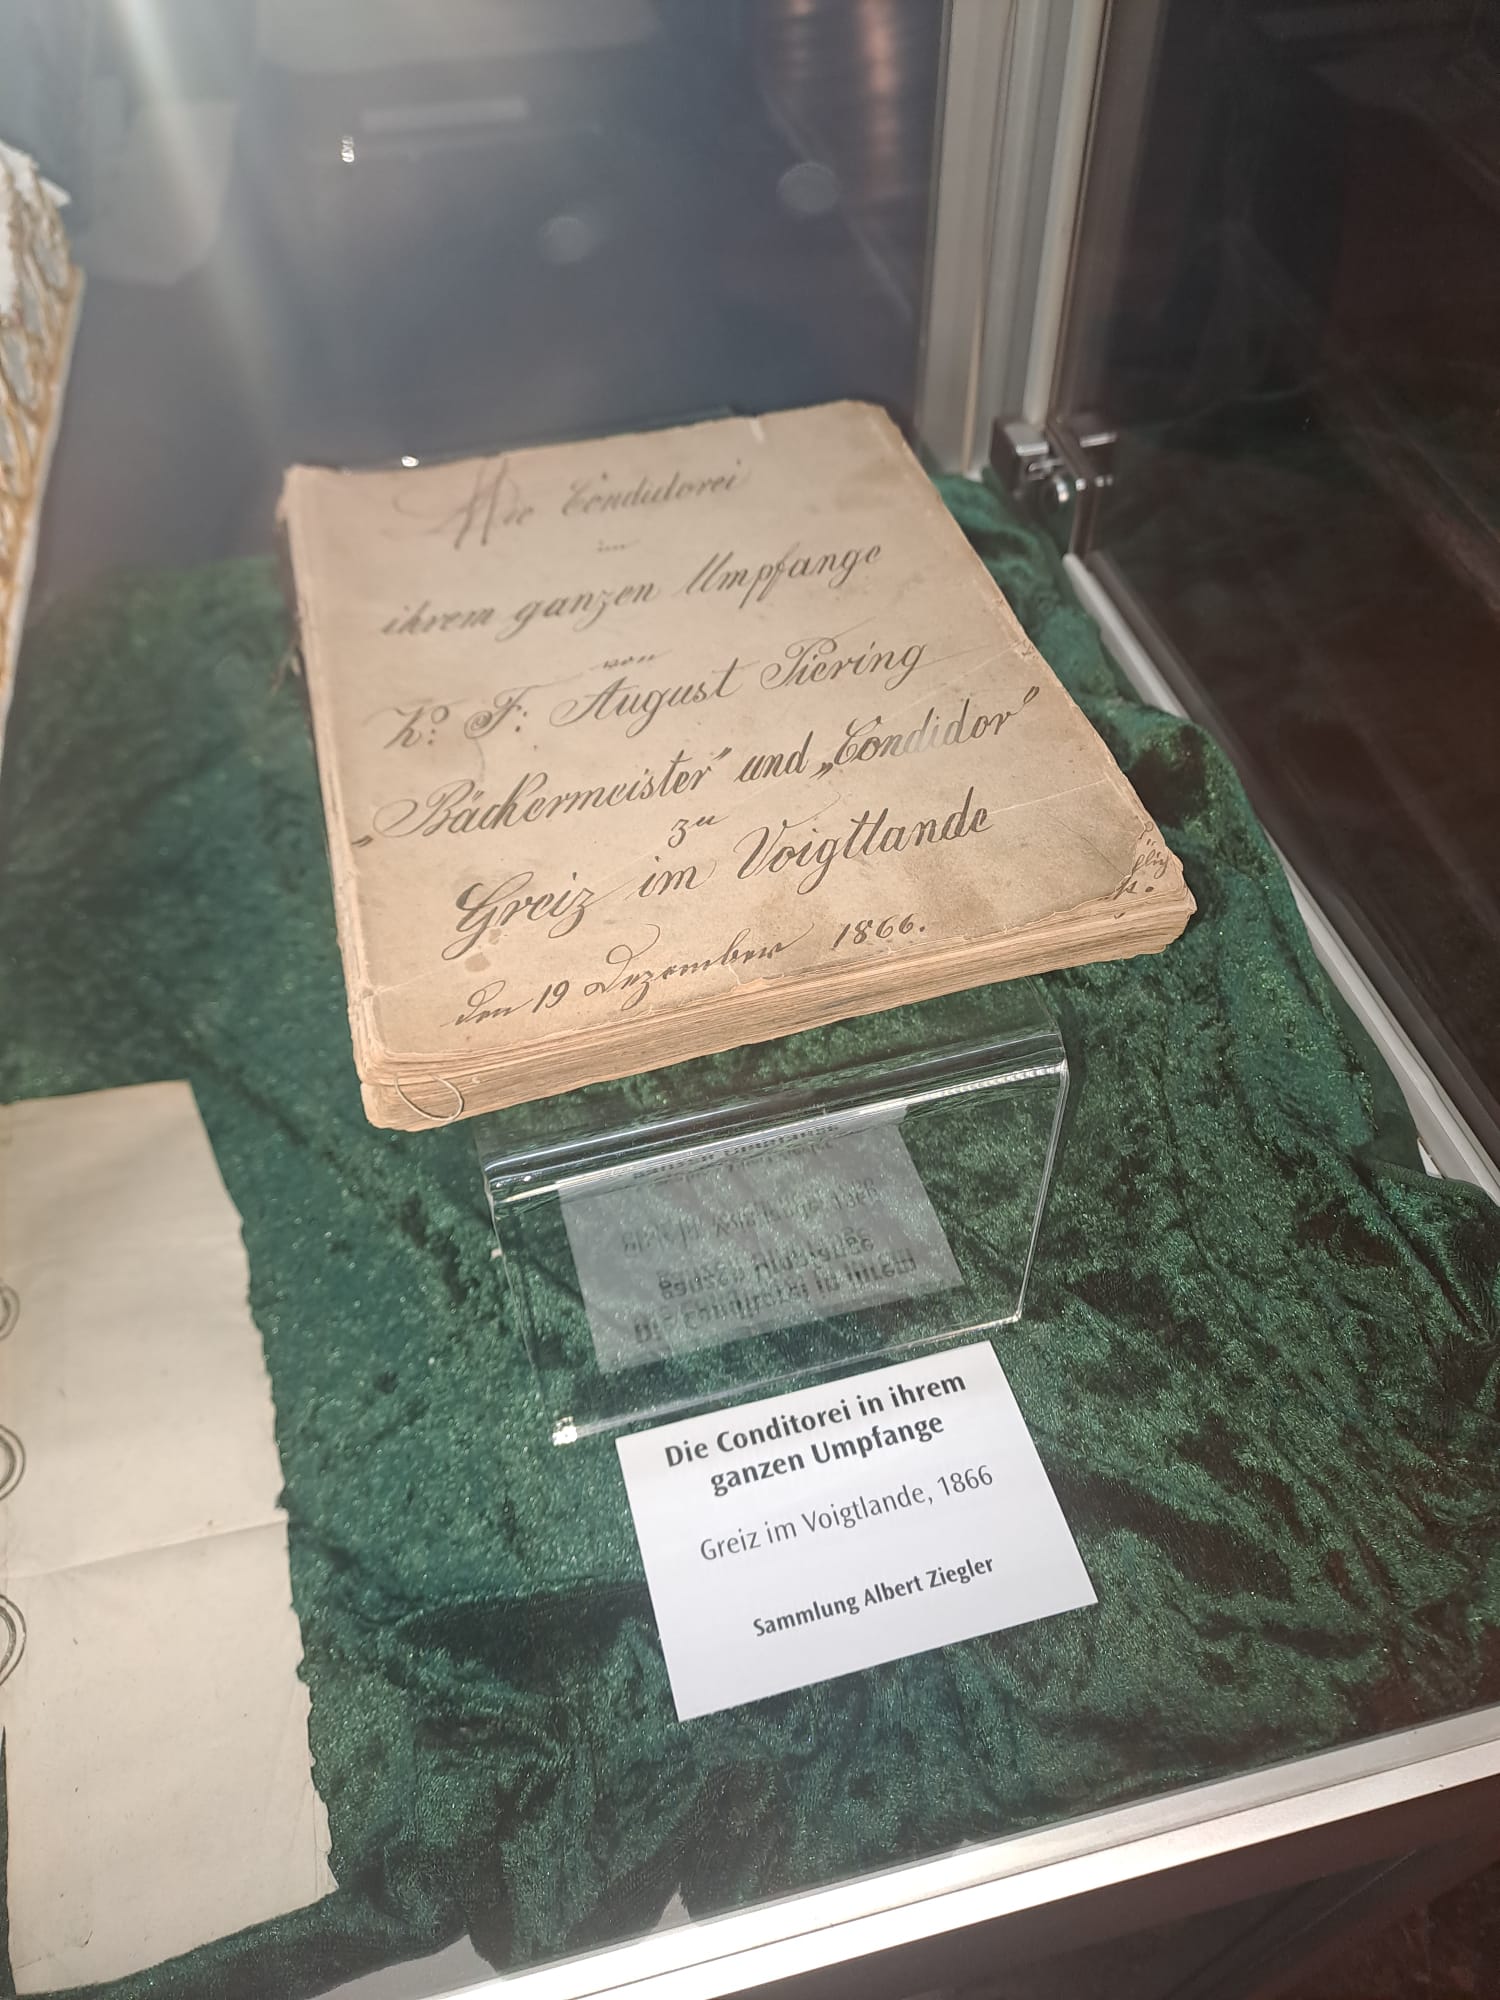 Die Condidorei
im
ihrem ganzen Umpfange
von
F: August Piering
„Bäckermeister" und „Condidor"
zu
Greiz im Voigtlande
den 19 Dezember 1866.
Die Conditorei in ihrem
ganzen Umpfange
Greiz im Voigtlande, 1866
Sammlung Albert Ziegler